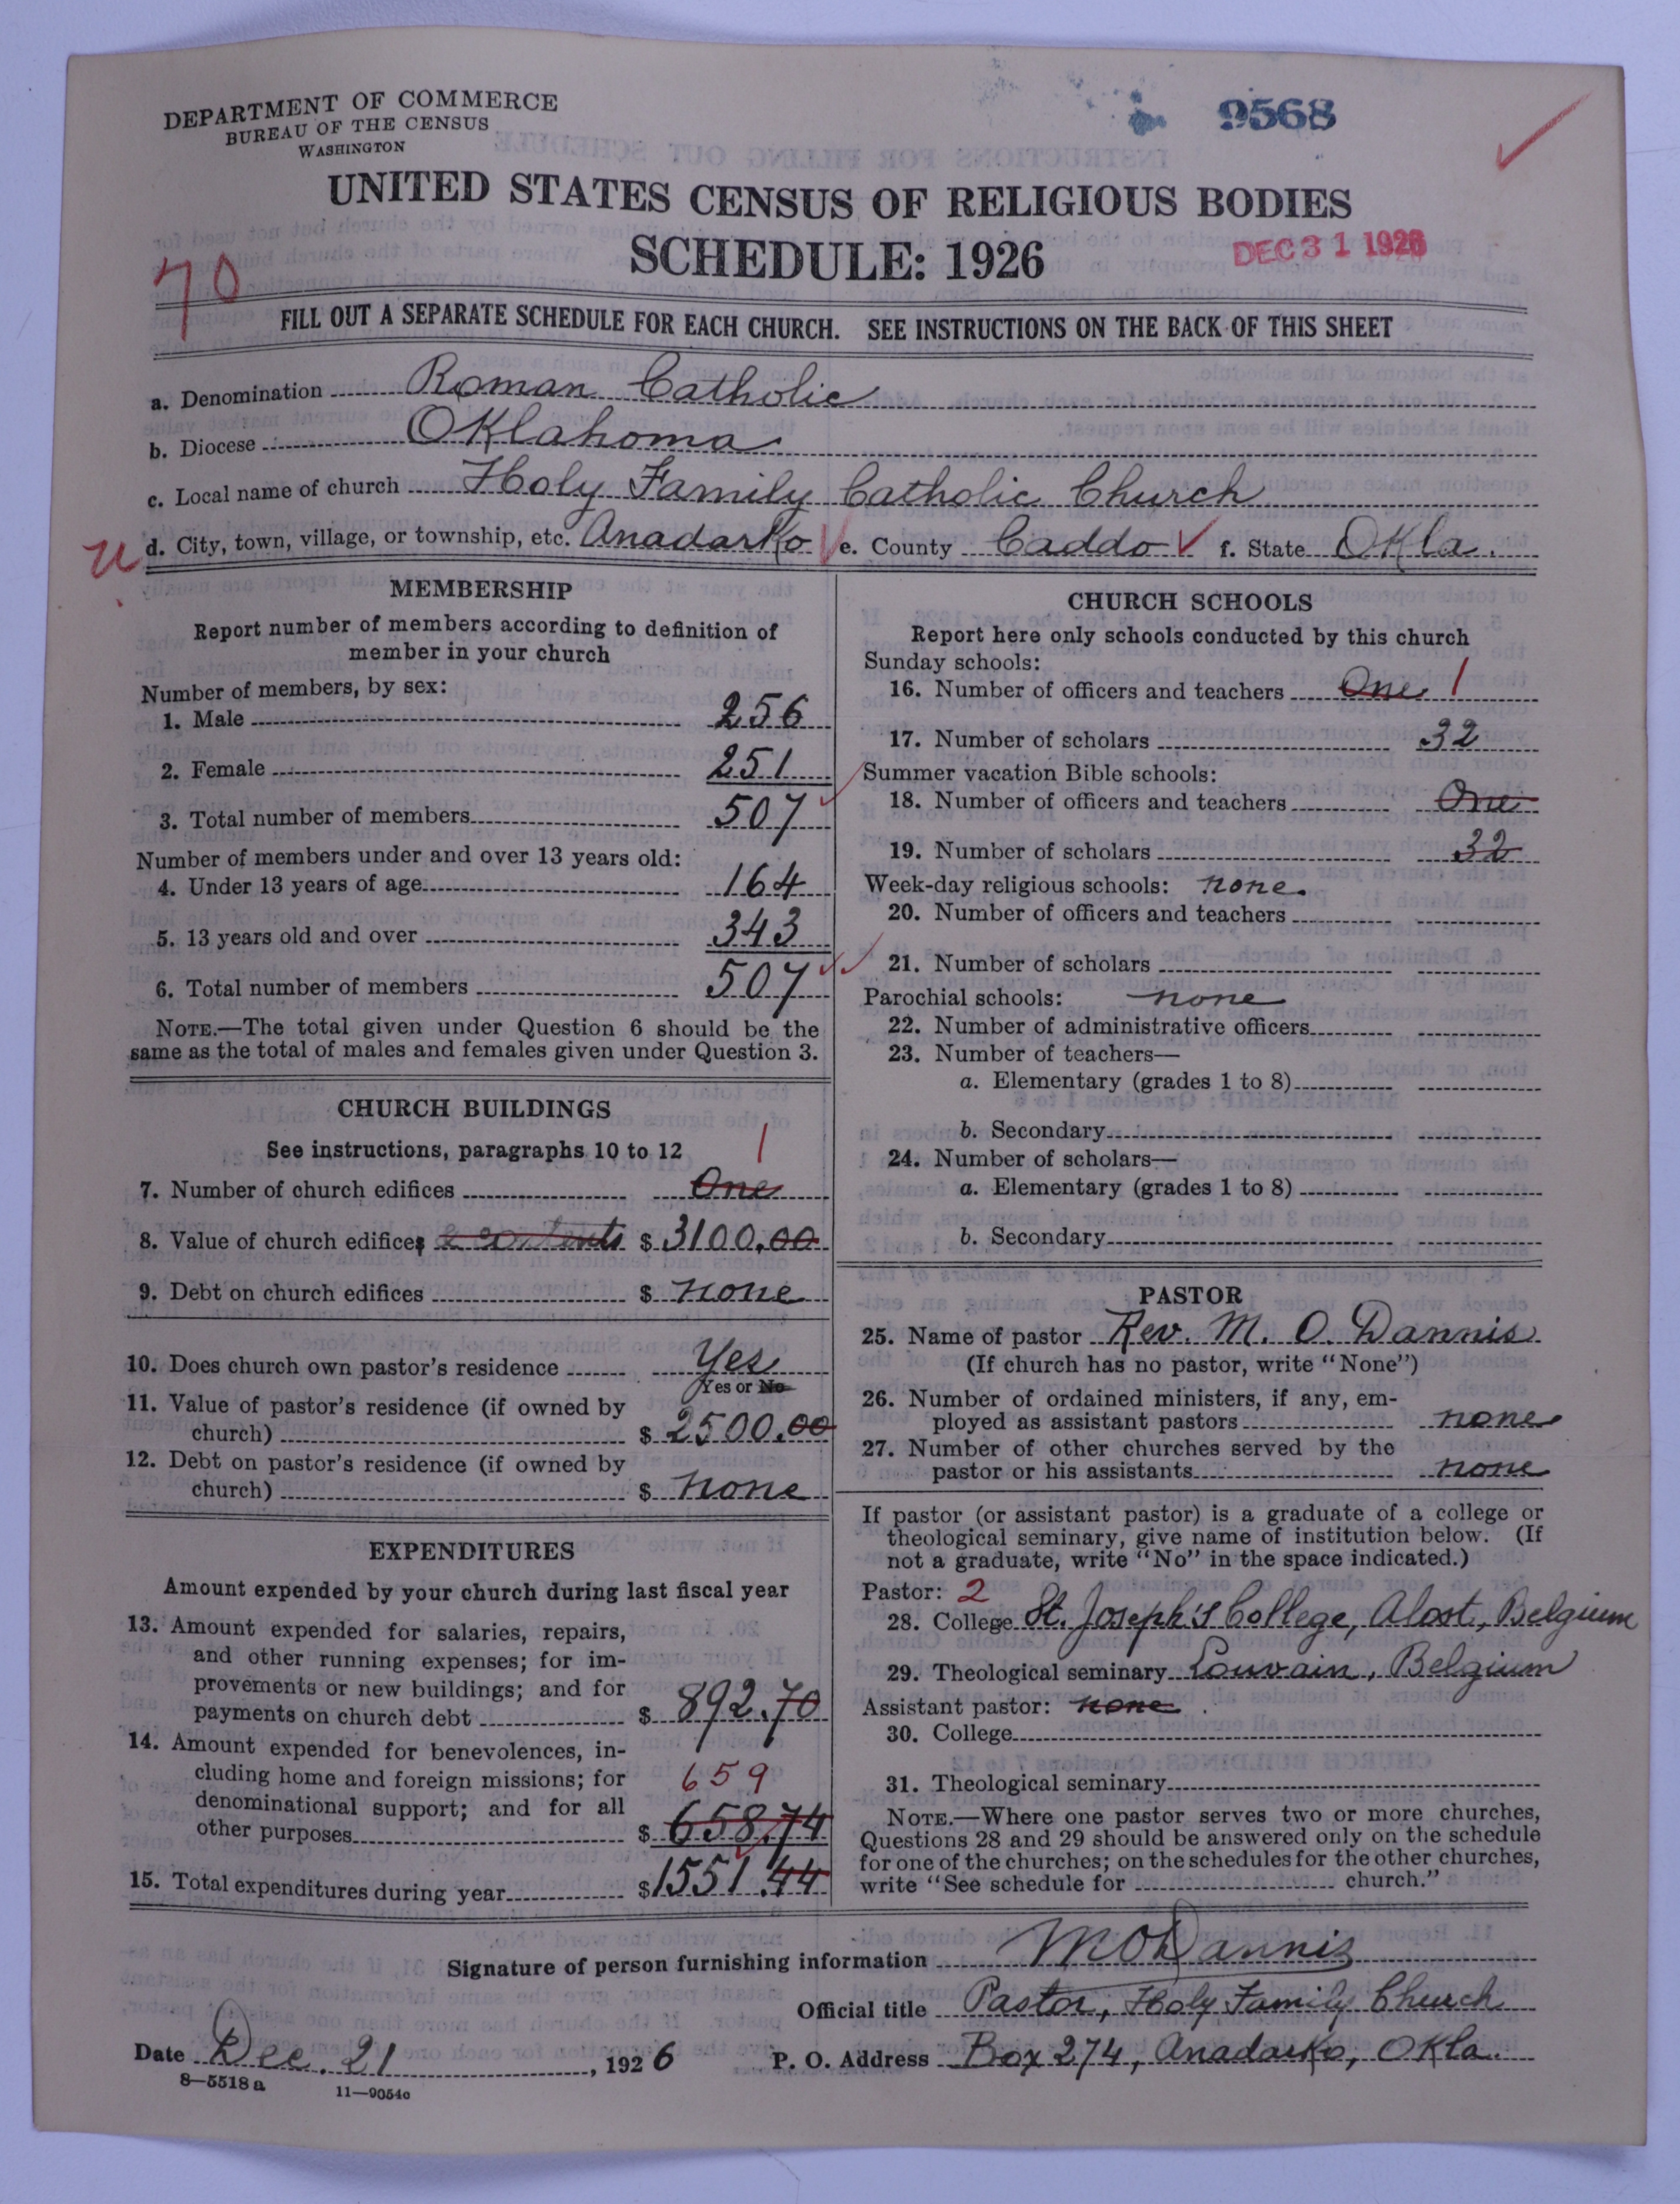 DEPARTMENT OF COMMERCE
BUREAU OF THE CENSUS
WASHINGTON
9568
UNITED STATES CENSUS OF RELIGIOUS BODIES
SCHEDULE: 1926
DEC 31 1926
70
FILL OUT A SEPARATE SCHEDULE FOR EACH CHURCH. SEE INSTRUCTIONS ON THE BACK OF THIS SHEET
a. Denomination Roman Catholic
b. Diocese Oklahoma
c. Local name of church Holy Family Catholic Church
u d. City, town, village, or township, etc. Anadarko e. County Caddo f. State Okla.
MEMBERSHIP
Report number of members according to definition of
member in your church
Number of members, by sex:
1. Male 256
2. Female 251
3. Total number of members 507
Number of members under and over 13 years old:
4. Under 13 years of age 164
5. 13 years old and over 343
6. Total number of members 507
NOTE.—The total given under Question 6 should be the
same as the total of males and females given under Question 3.
CHURCH BUILDINGS
See instructions, paragraphs 10 to 12 1
7. Number of church edifices One
8. Value of church edifices & contents $ 3100.00
9. Debt on church edifices $ none
10. Does church own pastor's residence Yes
Yes or No
11. Value of pastor's residence (if owned by
church) $ 2500.00
12. Debt on pastor's residence (if owned by
church) $ none
EXPENDITURES
Amount expended by your church during last fiscal year
13. Amount expended for salaries, repairs,
and other running expenses; for im-
provements or new buildings; and for
payments on church debt $ 892.70
14. Amount expended for benevolences, in-
cluding home and foreign missions; for 659
denominational support; and for all
other purposes $ 658.74
15. Total expenditures during year $1551.44
CHURCH SCHOOLS
Report here only schools conducted by this church
Sunday schools:
16. Number of officers and teachers One 1
17. Number of scholars 32
Summer vacation Bible schools:
18. Number of officers and teachers One
19. Number of scholars 32
Week-day religious schools: none.
20. Number of officers and teachers
21. Number of scholars
Parochial schools: none
22. Number of administrative officers
23. Number of teachers—
a. Elementary (grades 1 to 8)
b. Secondary
24. Number of scholars—
a. Elementary (grades 1 to 8)
b. Secondary
PASTOR
25. Name of pastor Rev. M. O. Dannis
(If church has no pastor, write "None")
26. Number of ordained ministers, if any, em-
ployed as assistant pastors none
27. Number of other churches served by the
pastor or his assistants none
If pastor (or assistant pastor) is a graduate of a college or
theological seminary, give name of institution below. (If
not a graduate, write "No" in the space indicated.)
Pastor: 2
28. College St. Joseph's College, Alost, Belgium
29. Theological seminary Louvain, Belgium
Assistant pastor: none
30. College
31. Theological seminary
NOTE.—Where one pastor serves two or more churches,
Questions 28 and 29 should be answered only on the schedule
for one of the churches; on the schedules for the other churches,
write "See schedule for church."
Signature of person furnishing information M O Dannis
Official title Pastor, Holy Family Church
Date Dec. 21, 1926 P. O. Address Box 274, Anadarko, Okla.
8—5518 a 11—9054c